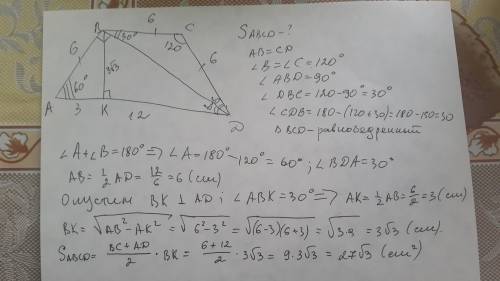 B 6 C
30° 120°
6 3√3 6
60°
A 3 K 12 D
S_ABCD - ?
AB = CD
∠B = ∠C = 120°
∠ABD = 90°
∠DBC = 120 - 90° = 30°
∠CDB = 180 - (120+30) = 180 - 150 = 30
△BCD - равнобедренный
∠A + ∠B = 180° => ∠A = 180° - 120° = 60°; ∠BDA = 30°
AB = 1/2 AD = 12/6 = 6 (см)
Опустим BK ⊥ AD; ∠ABK = 30° => AK = 1/2 AB = 6/2 = 3 (см)
BK = √(AB² - AK²) = √(6² - 3²) = √((6-3)(6+3)) = √(3·9) = 3√3 (см).
S_ABCD = (BC + AD)/2 · BK = (6+12)/2 · 3√3 = 9·3√3 = 27√3 (см²)